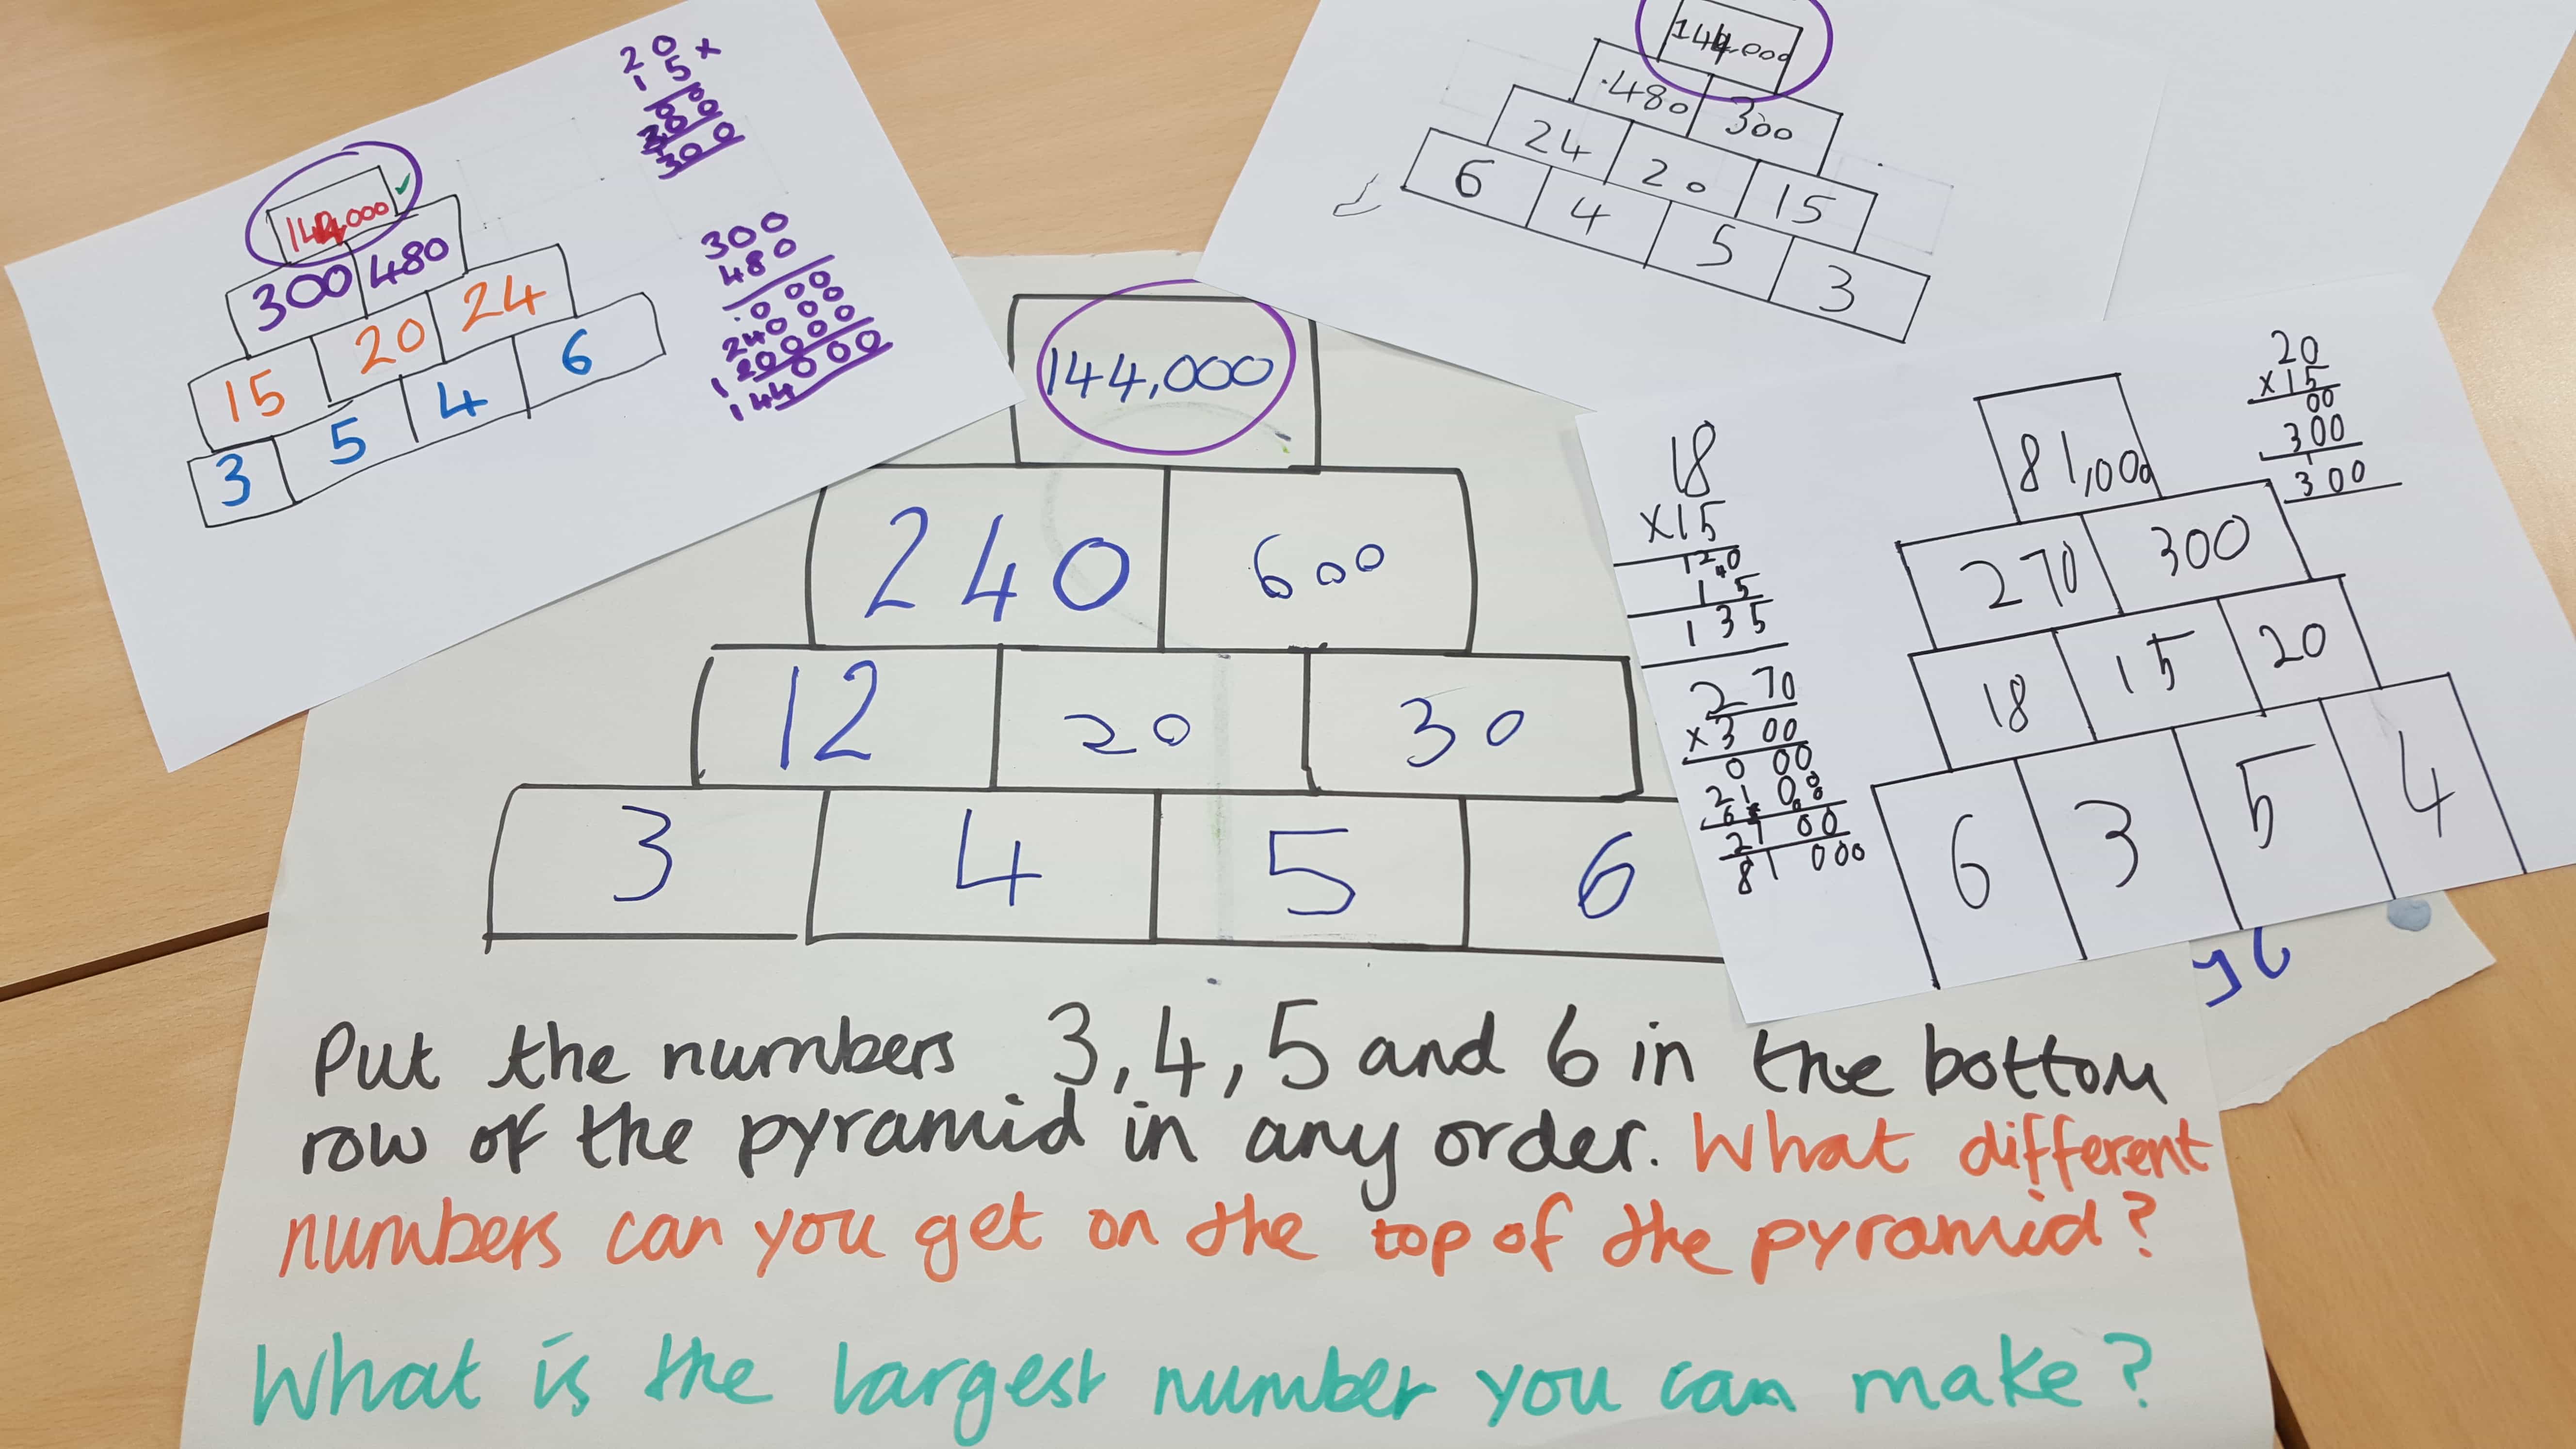 20 x
15
00
200
300
144,000
300 480
15 20 24
3 5 4 6
300
480
000
24000
120000
144000
144,000
480 300
24 20 15
6 4 5 3
144,000
240 600
12 20 30
3 4 5 6
18
X15
120
15
135
270
x300
000
81 000
20
x15
00
300
300
81,000
270 300
18 15 20
6 3 5 4
Put the numbers 3, 4, 5 and 6 in the bottom
row of the pyramid in any order. What different
numbers can you get on the top of the pyramid?
What is the largest number you can make?